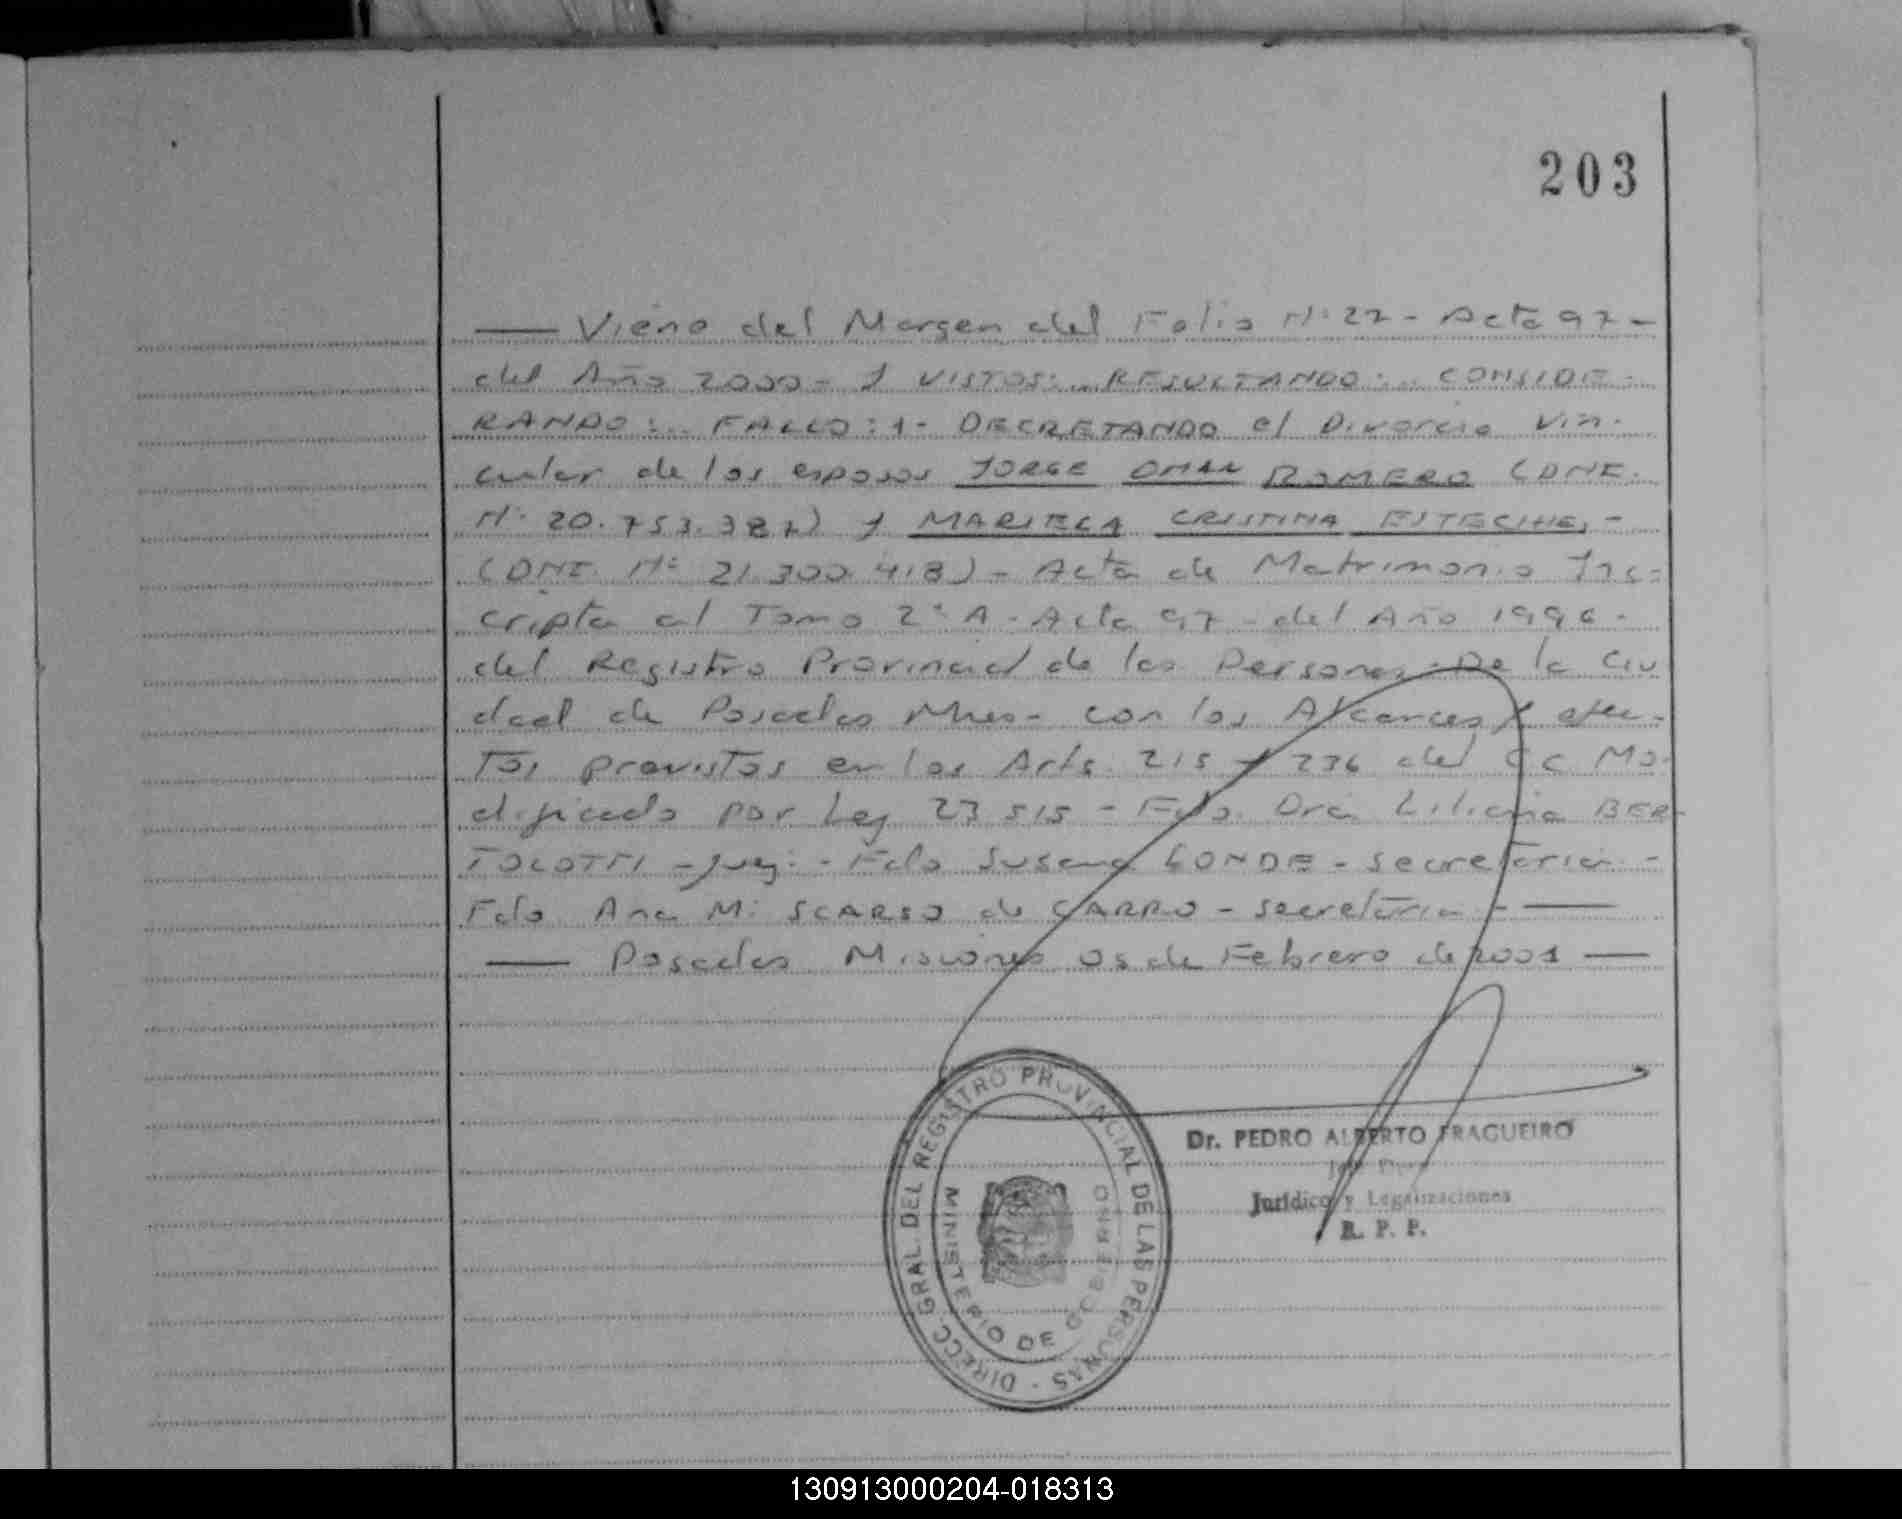 203
— Viene del Margen del Folio Nº 27 - Acta 97 -
del Año 2000 - y VISTOS:.. RESULTANDO:.. CONSIDE-
RANDO:.. FALLO: 1- DECRETANDO el Divorcio Vin-
cular de los esposos JORGE OMAR ROMERO (DNI.
Nº 20.753.387) y MARIELA CRISTINA ESTECHE, -
(DNI. Nº 21.300.418) - Acta de Matrimonio Ins-
cripta al Tomo 2º A - Acta 97 - del Año 1996 -
del Registro Provincial de las Personas - De la Ciu
dad de Posadas Mnes - con los Alcances y efec-
tos previstos en los Arts. 215 y 236 del CC Mo-
dificado por Ley 23515 - Fdo. Dra. Liliana BER-
TOLOTTI - Juez - Fdo Susana CONDE - secretaria -
Fdo. Ana Mª SCARSO de CARRO - secretaria - —
— Posadas Misiones 05 de Febrero de 2001 —
DIRECC. GRAL. DEL REGISTRO PROVINCIAL DE LAS PERSONAS -
MINISTERIO DE GOBIERNO
Dr. PEDRO ALBERTO FRAGUEIRO
Jurídico y Legalizaciones
R. P. P.
130913000204-018313